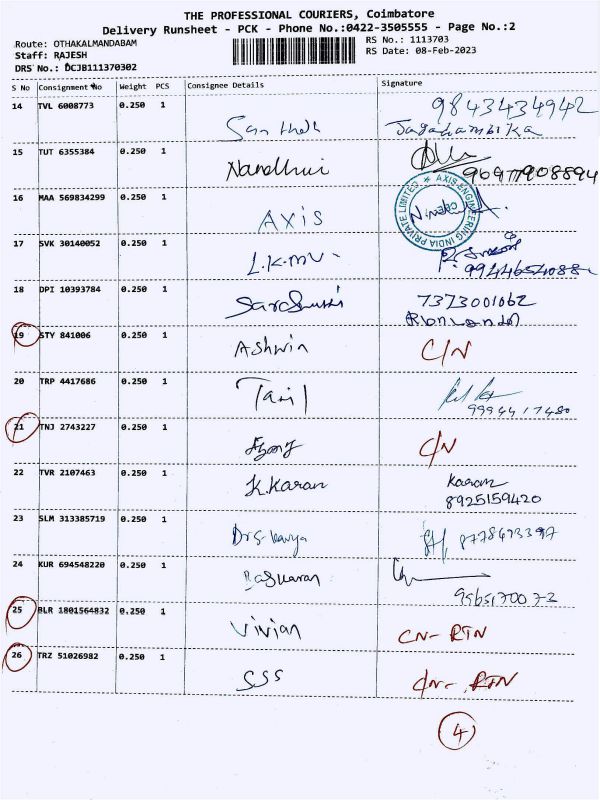 THE PROFESSIONAL COURIERS, Coimbatore
Delivery Runsheet - PCK - Phone No.:0422-3505555 - Page No.:2
Route: OTHAKALMANDABAM
RS No.: 1113703
Staff: RAJESH
RS Date: 08-Feb-2023
DRS No.: DCJB111370302
S No Consignment No Weight PCS Consignee Details Signature
14 TVL 6008773 0.250 1 9843434942
Jagadambika
15 TUT 6355384 0.250 1 Nandhini
16 MAA 569834299 0.250 1 AXIS
AXIS ENGINEERING INDIA PRIVATE LIMITED
17 SVK 30140052 0.250 1 L.K.M.V.
18 DPI 10393784 0.250 1 7373001062
19 STY 841006 0.250 1 Ashwin C/N
20 TRP 4417686 0.250 1
9994417480
21 TNJ 2743227 0.250 1 C/N
22 TVR 2107463 0.250 1 K.Karan Karan
8925159420
23 SLM 313385719 0.250 1
24 KUR 694548220 0.250 1
25 BLR 1801564832 0.250 1 Vivian CN- RTN
26 TRZ 51026982 0.250 1 SSS C/N- RTN
4